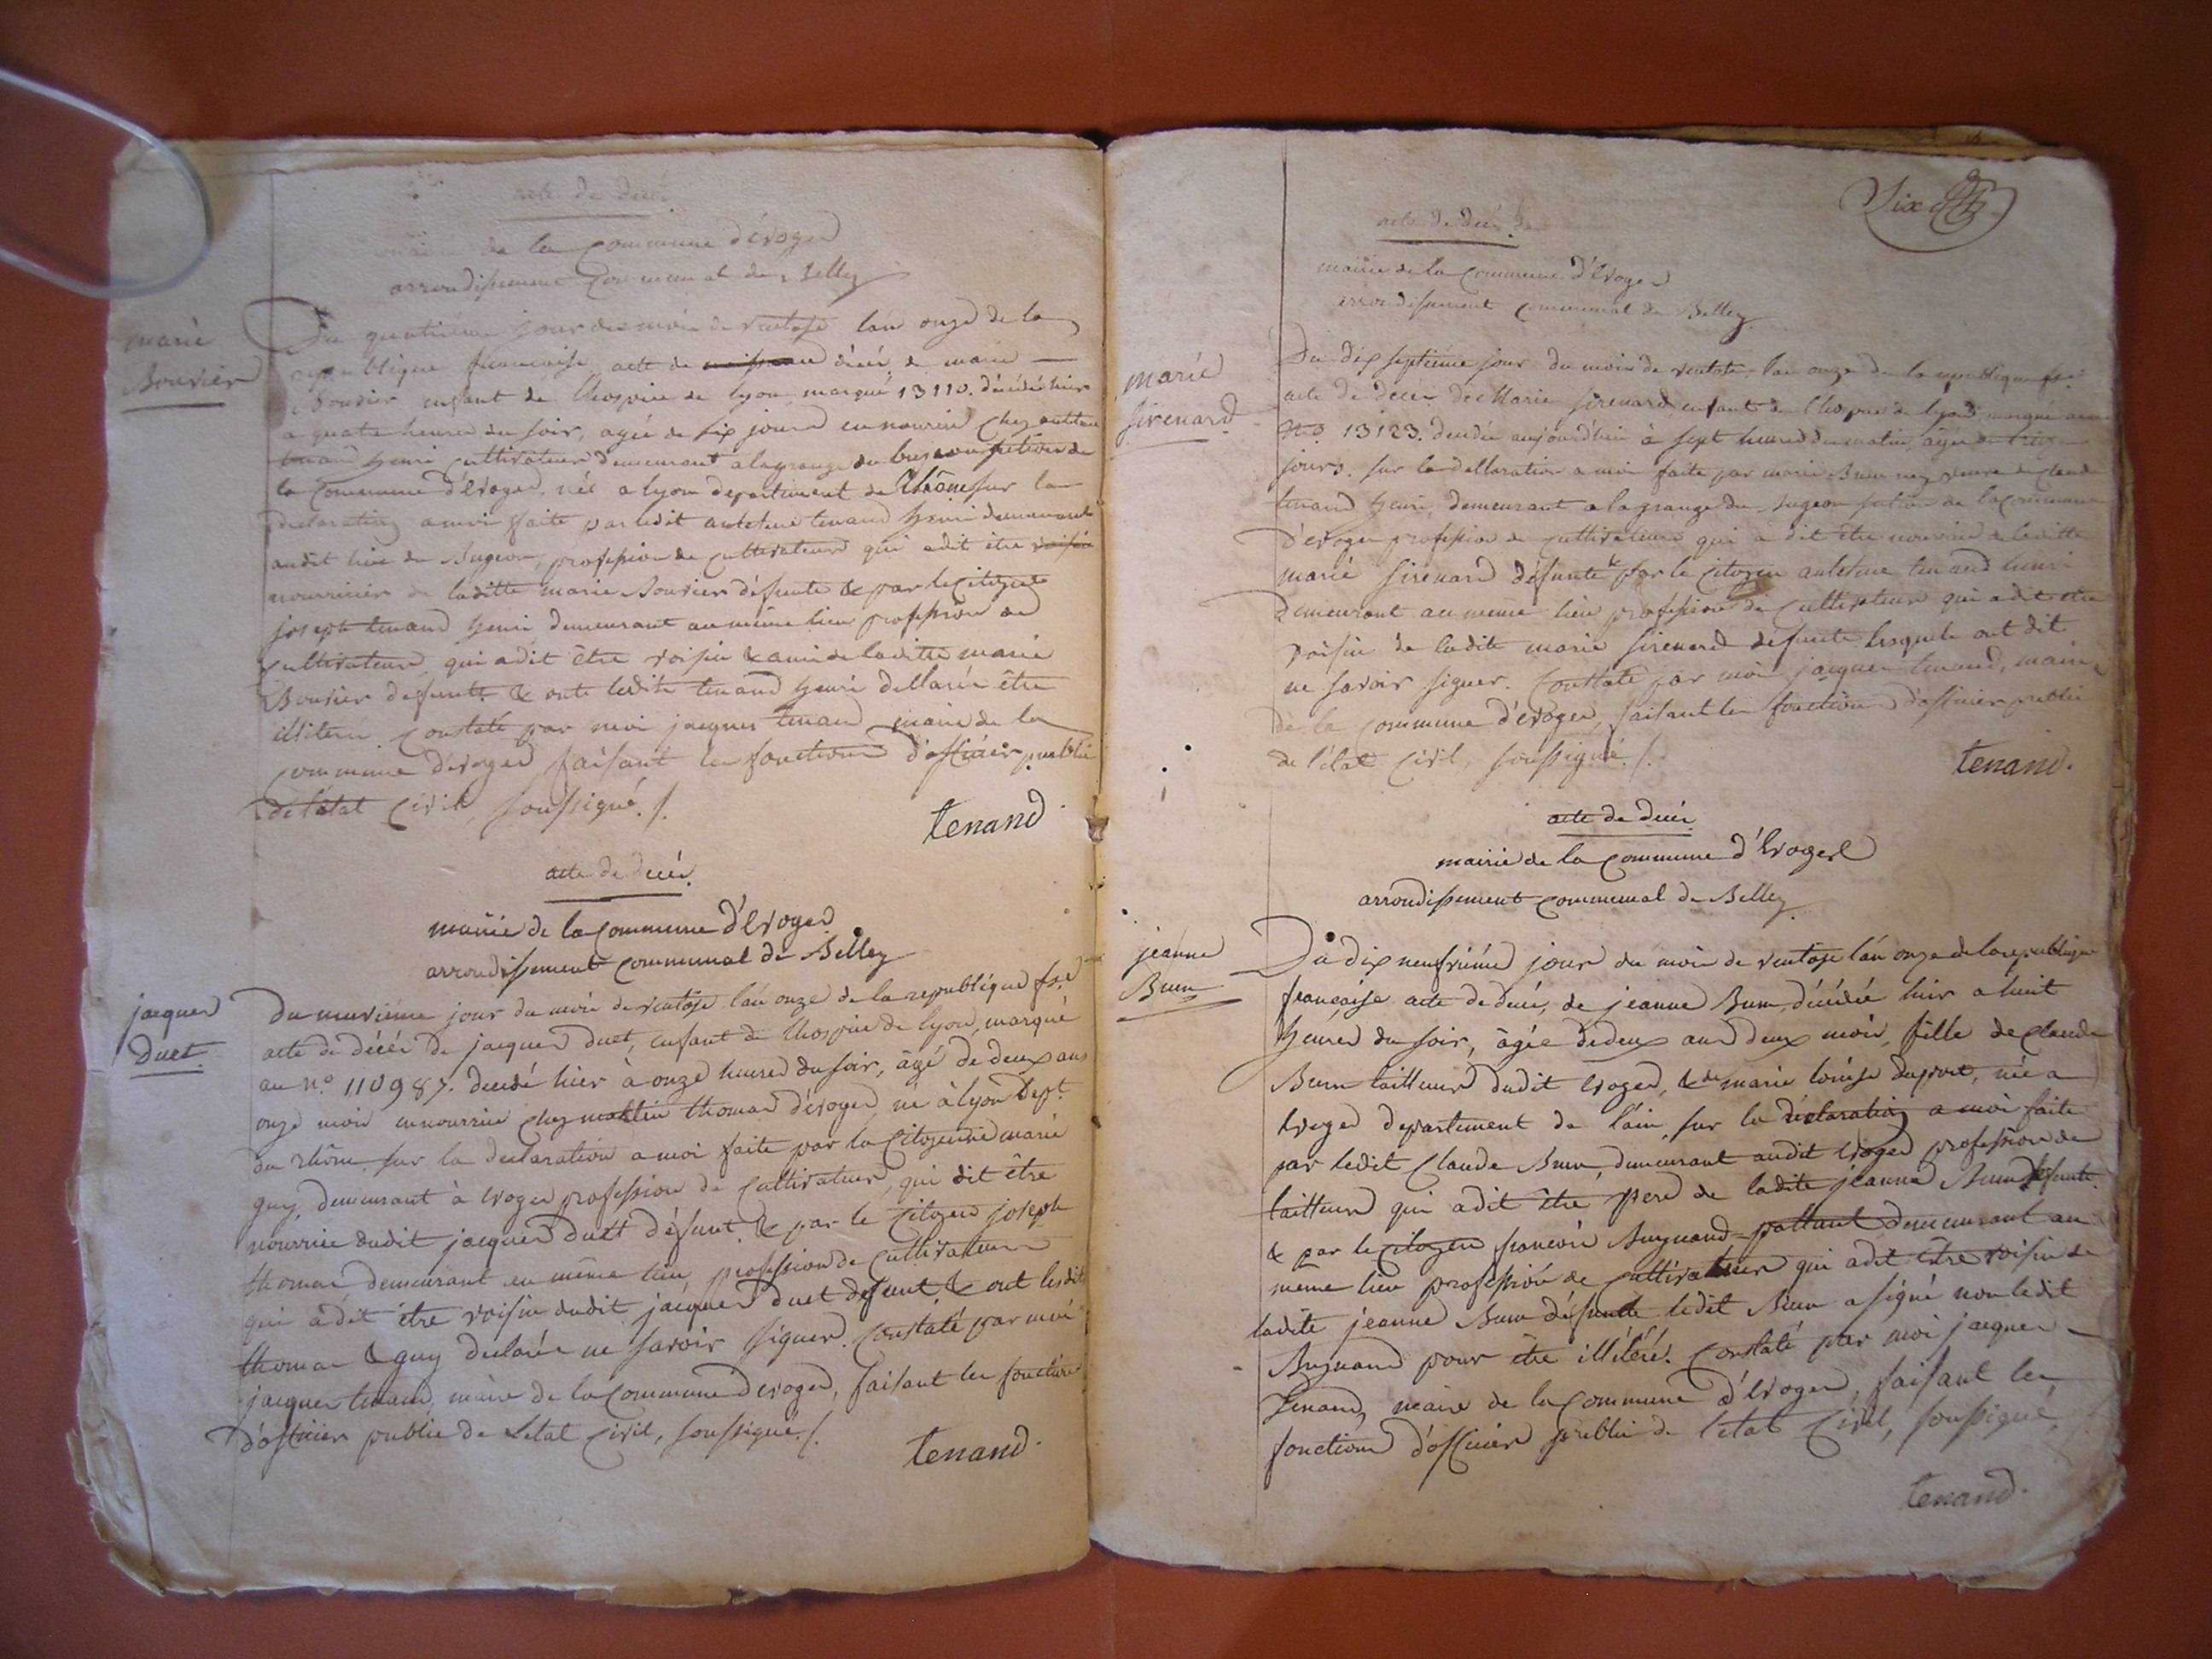 acte de decés
de la Commune d'Evoges
arrondissement Communal de Belley
marie
Bouvier
Du quatrieme jour du mois de ventose l'an onze de la
republique francaise acte de decés de marie
Bouvier enfant de l'hospice de lyon, marqué 13110. décédée hier
a quatre heures du soir, agée de six jours en nourrice chez antelme
tenand henri cultivateur demeurant a la grange du section de
la Commune d'Evoges. née a lyon departement du Rhône sur la
declaration a moi faite par ledit antelme tenand henri demeurant
audit lieu du Sugeon, profession de cultivateur qui a dit être voisin
nourricier de laditte marie Bouvier défunte & par le Citoyen
joseph tenand henri demeurant au même lieu profession de
cultivateur, qui a dit être voisin & ami de laditte marie
Bouvier defunte. & ont lesdits tenand henri dellarés être
illiterés. Constaté par moi jacques tenand maire de la
commune d'evoges faisant les fonctions d'officier public
de l'état Civil, soussigné ./.
tenand
acte de decés.
mairie de la Commune d'Evoges
arrondissement Communal de Belley
jacques
Duet
Du neuvieme jour du mois de ventose l'an onze de la republique fse
acte de décés de jacques duet, enfant de l'hospice de lyon, marqué
au n.o 110987. decedé hier à onze heures du soir, âgé de deux ans
onze mois en nourrice chez thomas d'evoges, né à lyon Dept.
du rhône. sur la declaration a moi faite par la Citoyenne marie
guy, demeurant à evoges profession de cultivateur, qui dit être
nourrice dudit jacques duet défunt. & par le Citoyen joseph
thomas demeurant au même lieu, profession de cultivateur
qui a dit être voisin dudit jacques duet defunt, & ont lesdits
thomas & guy declarés ne savoir signer. Constaté par moi
jacques tenand, maire de la Commune d'evoges, faisant les fonctions
d'officier public de l'etat Civil, soussigné ./.
tenand.
Six
acte de decés
mairie de la Commune d'Evoges
arrondissement Communal de Belley
marie
sirenard
Du dix septieme jour du mois de ventose l'an onze de la republique fse
acte de decés de Marie sirenard, enfant de l'hospice de lyon marqué au
No 13123. decedée aujourd'hui à sept heures du matin, agée de
jours. sur la dellaration a moi faite par marie veuve de claude
tenand henri, demeurant a la grange du Sugeon section de la commune
d'evoges profession de cultivateur qui a dit être nourrice de laditte
marie sirenard défunte & par le Citoyen antelme tenand henri
demeurant au même lieu profession de cultivateur qui a dit être
voisin de ladite marie sirenard defunte lesquels ont dit
ne savoir signer. Constaté par moi jacques tenand, maire
de la commune d'evoges, faisant les fonctions d'officier public
de l'état Civil, soussigné ./.
tenand.
acte de decés
mairie de la Commune d'Evoges
arrondissement Communal de Belley
jeanne
Brun
Du dix neufvieme jour du mois de ventose l'an onze de la republique
française acte de decés, de jeanne Brun, décédée hier a huit
heures du soir, âgée de deux ans deux mois, fille de claude
Brun tailleur dudit Evoges, & de marie louise duport, née a
Evoges departement de l'ain, sur la déclaration a moi faite
par ledit Claude Brun, demeurant audit Evoges profession de
tailleur qui a dit être pere de ladite jeanne Brun défunte.
& par le Citoyen francois demeurant au
même lieu profession de cultivateur qui a dit être voisin de
ladite jeanne Brun défunte ledit Brun a signé non ledit
pour être illitéré. Constaté par moi jacques
tenand, maire de la Commune d'Evoges, faisant les
fonctions d'officier public de l'etat Civil, soussigné
tenand.